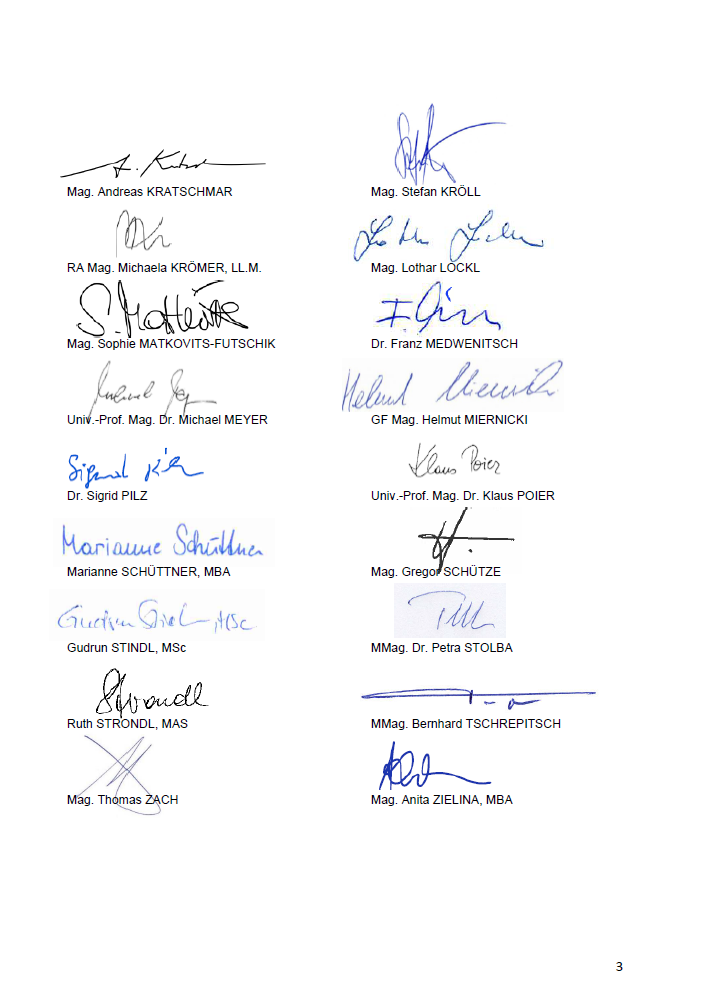 A. Krat
Mag. Andreas KRATSCHMAR
Mag. Stefan KRÖLL
RA Mag. Michaela KRÖMER, LL.M.
Mag. Lothar LOCKL
S. Matkovits
Mag. Sophie MATKOVITS-FUTSCHIK
Dr. Franz MEDWENITSCH
Univ.-Prof. Mag. Dr. Michael MEYER
Helmut Miernicki
GF Mag. Helmut MIERNICKI
Sigrid Pilz
Dr. Sigrid PILZ
Klaus Poier
Univ.-Prof. Mag. Dr. Klaus POIER
Marianne Schüttner
Marianne SCHÜTTNER, MBA
Mag. Gregor SCHÜTZE
Gudrun Stindl, MSc
Gudrun STINDL, MSc
MMag. Dr. Petra STOLBA
Strondl
Ruth STRONDL, MAS
MMag. Bernhard TSCHREPITSCH
Mag. Thomas ZACH
Mag. Anita ZIELINA, MBA
3